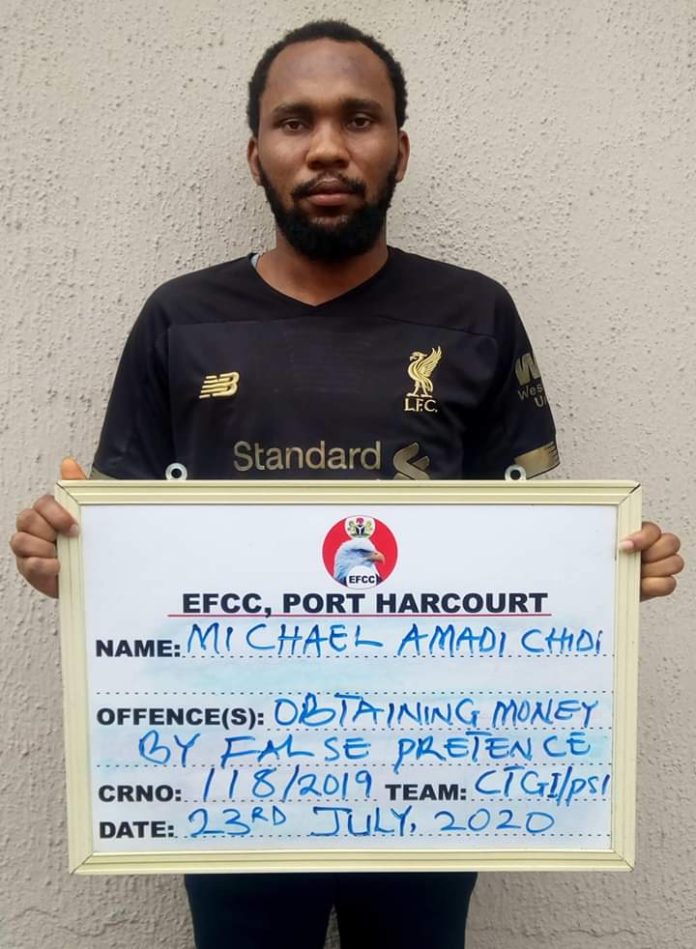 L.F.C.
Standard
EFCC
EFCC, PORT HARCOURT
NAME: MICHAEL AMADI CHIDI
OFFENCE(S): OBTAINING MONEY
BY FALSE PRETENCE
CRNO: 118/2019 TEAM: CTGI/PSI
DATE: 23RD JULY, 2020